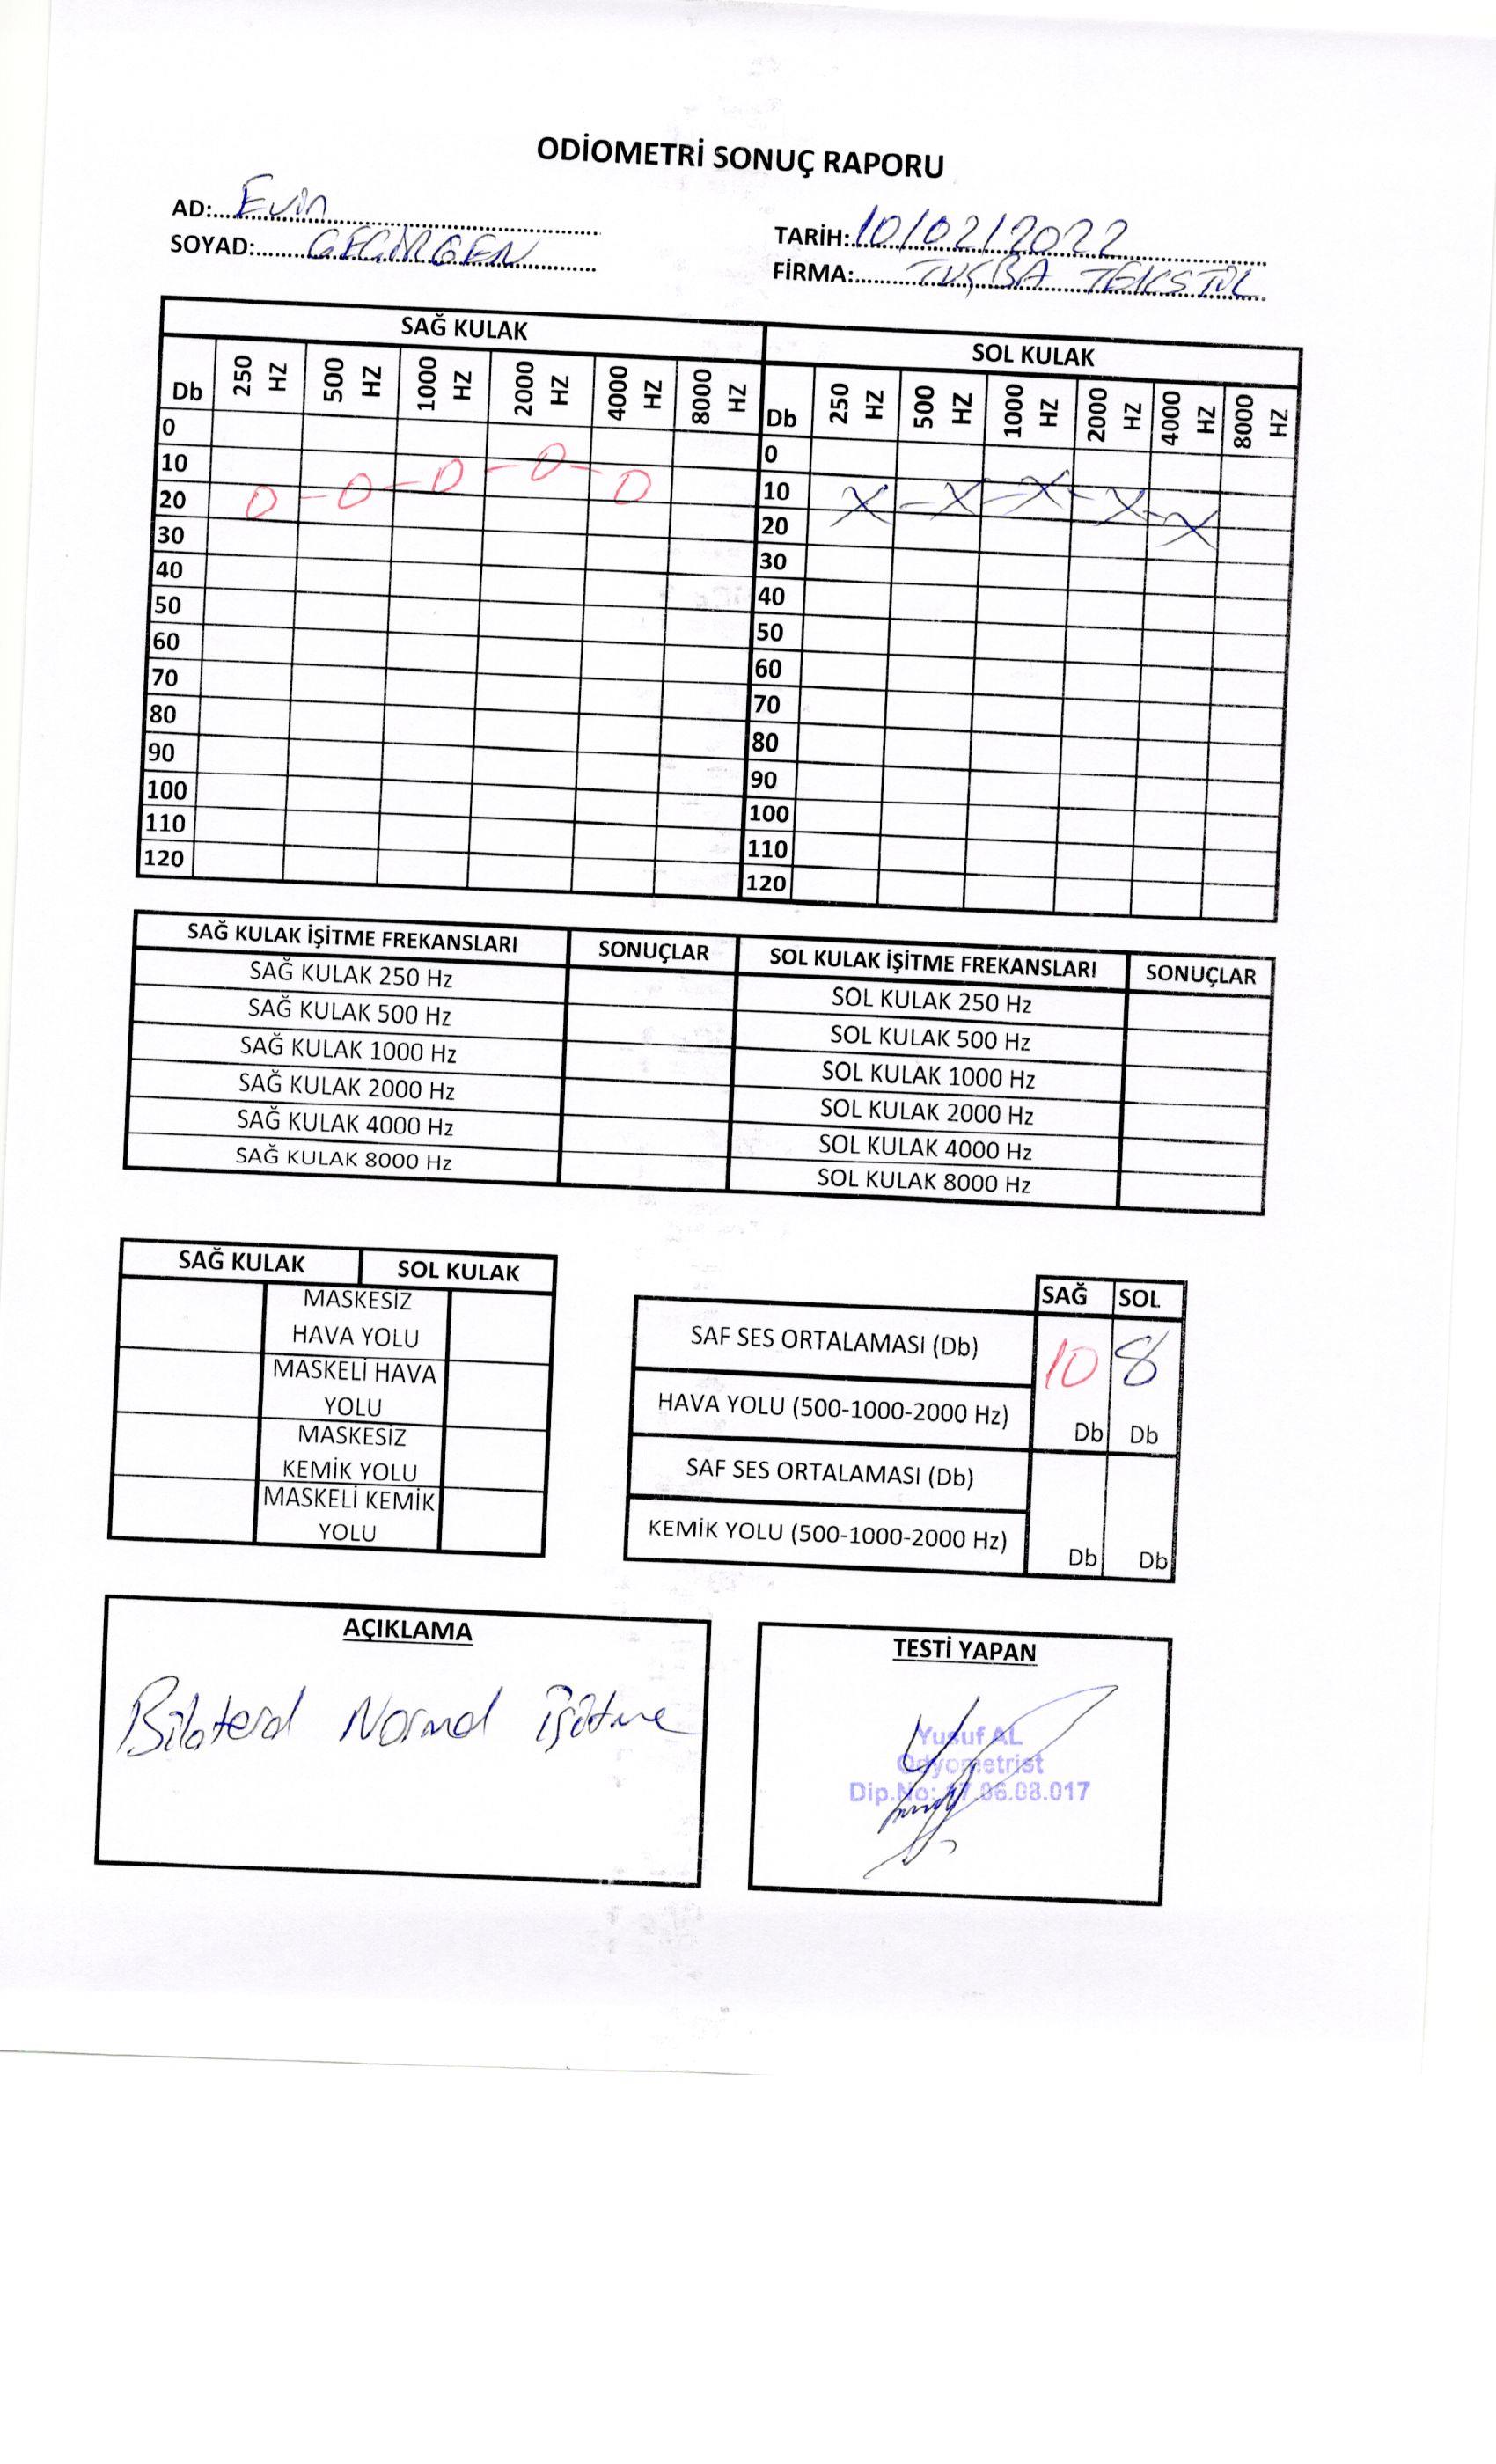 ODİOMETRİ SONUÇ RAPORU
AD: Evin
SOYAD: GEÇİRGEN
TARİH: 10/02/2022
FİRMA: TUĞBA TEKSTİL
SAĞ KULAK SOL KULAK
Db 250 HZ 500 HZ 1000 HZ 2000 HZ 4000 HZ 8000 HZ Db 250 HZ 500 HZ 1000 HZ 2000 HZ 4000 HZ 8000 HZ
0 0
10 10
20 20
30 30
40 40
50 50
60 60
70 70
80 80
90 90
100 100
110 110
120 120
SAĞ KULAK İŞİTME FREKANSLARI SONUÇLAR SOL KULAK İŞİTME FREKANSLARI SONUÇLAR
SAĞ KULAK 250 Hz SOL KULAK 250 Hz
SAĞ KULAK 500 Hz SOL KULAK 500 Hz
SAĞ KULAK 1000 Hz SOL KULAK 1000 Hz
SAĞ KULAK 2000 Hz SOL KULAK 2000 Hz
SAĞ KULAK 4000 Hz SOL KULAK 4000 Hz
SAĞ KULAK 8000 Hz SOL KULAK 8000 Hz
SAĞ KULAK SOL KULAK
MASKESİZ
HAVA YOLU
MASKELİ HAVA
YOLU
MASKESİZ
KEMİK YOLU
MASKELİ KEMİK
YOLU
SAĞ SOL
SAF SES ORTALAMASI (Db) 10 8
HAVA YOLU (500-1000-2000 Hz) Db Db
SAF SES ORTALAMASI (Db)
KEMİK YOLU (500-1000-2000 Hz) Db Db
AÇIKLAMA
Bilateral Normal işitme
TESTİ YAPAN
Yusuf AL
Odyometrist
Dip.No: 17.06.08.017